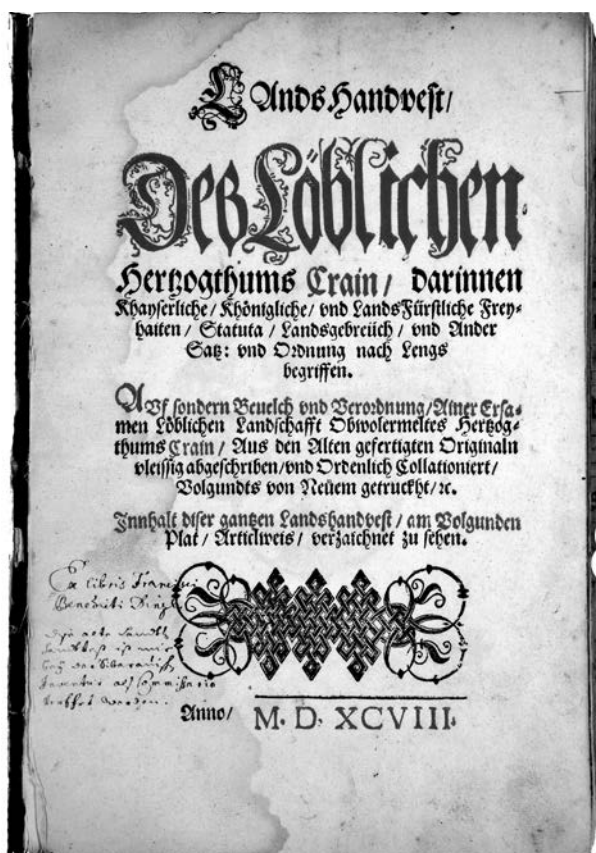 LAnds Handvest/
Deß Löblichen
Hertzogthums Crain/ darinnen
Khayserliche/ Khönigliche/ vnd LandsFürstliche Frey-
haiten/ Statuta/ Landsgebreüch/ vnd Ander
Satz: vnd Ordnung nach Lengs
begriffen.
AVf sondern Beuelch vnd Verordnung/ Ainer Ersa-
men Löblichen Landschafft Obwolermeltes Hertzog-
thums Crain/ Aus den Alten gefertigten Originaln
vleissig abgeschriben/ vnd Ordenlich Collationiert/
Volgundts von Neüem getruckht/ ꝛc.
Innhalt diser gantzen Landshandvest/ am Volgunden
Plat/ Articlweis/ verzaichnet zu sehen.
Ex libris Francisci
Benedicti
Anno/ M. D. XCVIII.